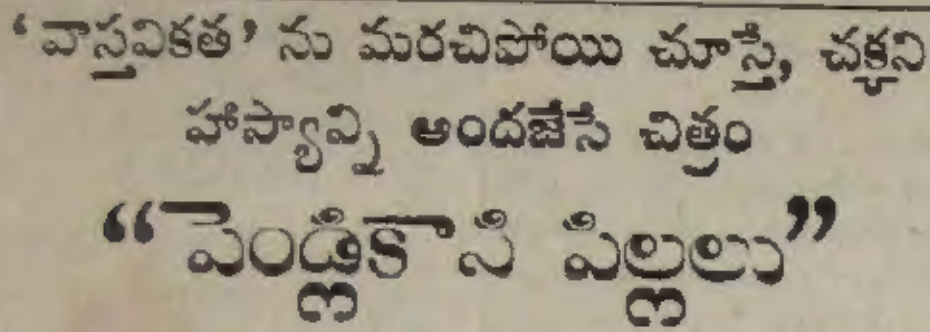 ‘వాస్తవికత’ ను మరచిపోయి చూస్తే, చక్కని
హాస్యాన్ని అందజేసే చిత్రం
“పెండ్లికాని పిల్లలు”